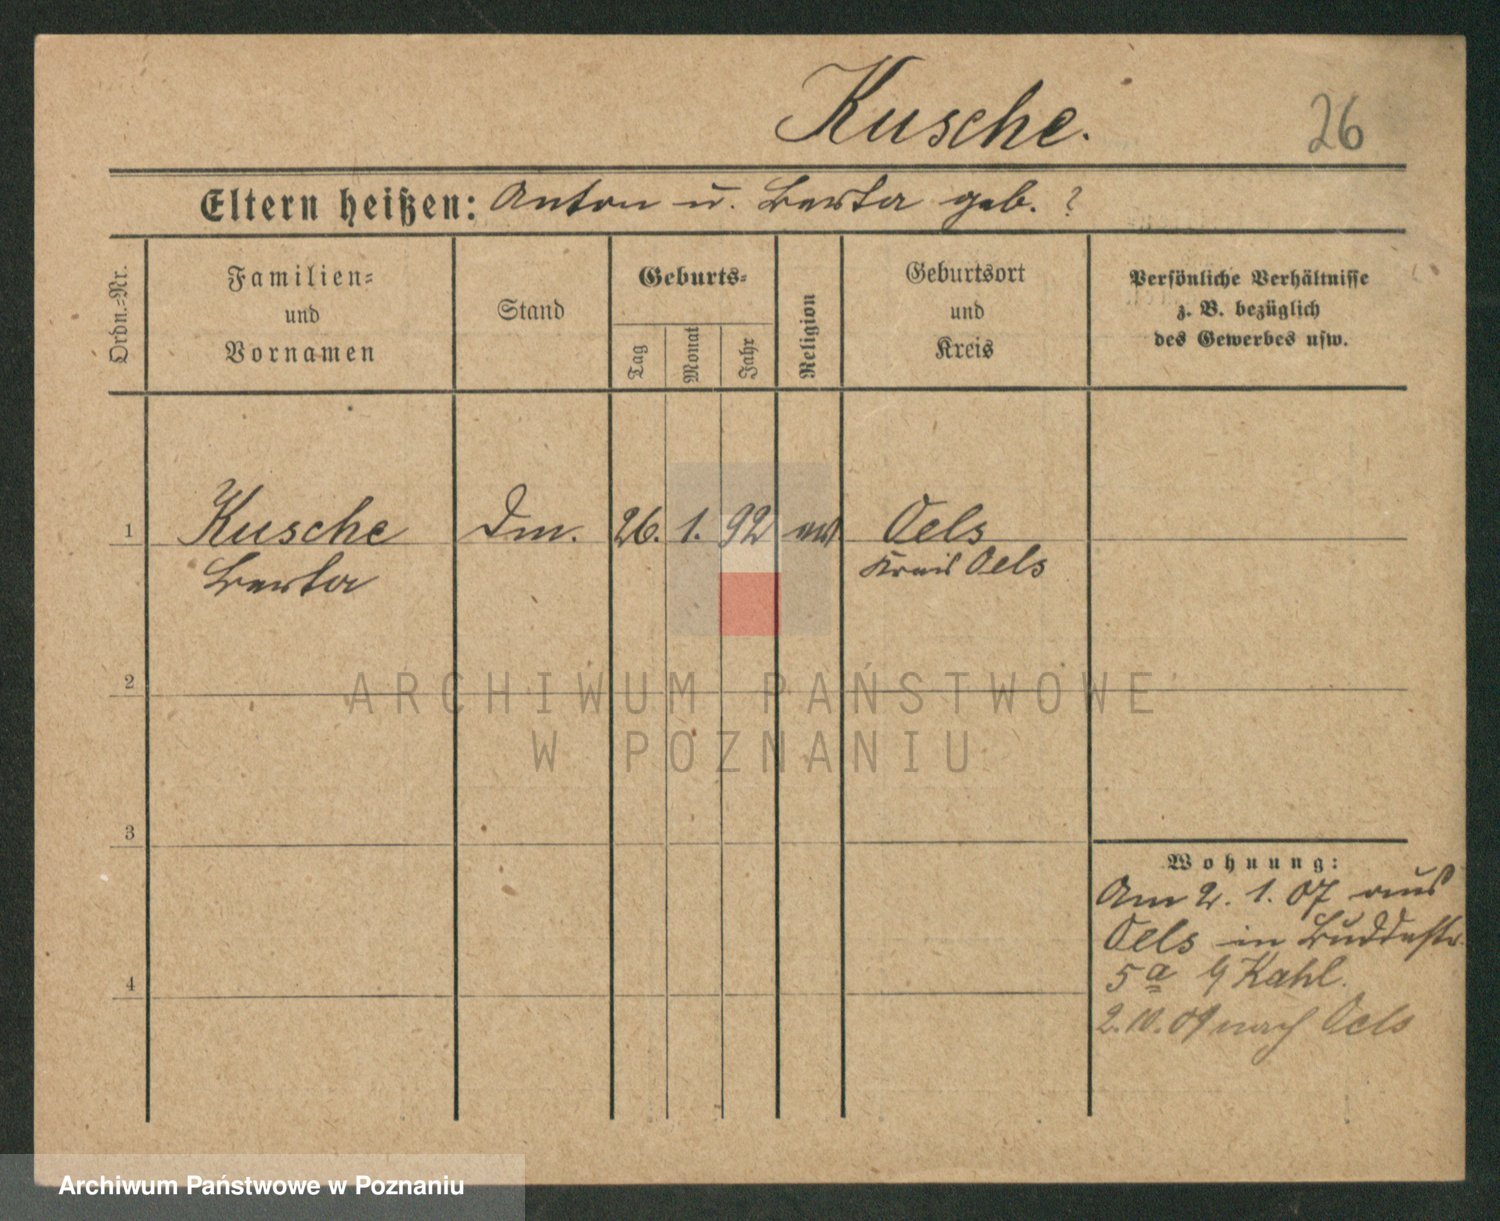 Kusche.
26
Eltern heißen: Anton u. Berta geb. ?
Ordn.-Nr.
Familien-
und
Vornamen
Stand
Geburts-
Tag
Monat
Jahr
Religion
Geburtsort
und
Kreis
Persönliche Verhältnisse
z. B. bezüglich
des Gewerbes usw.
1 Kusche Dm. 26. 1. 92 ev. Oels
Berta Kreis Oels
2
ARCHIWUM PAŃSTWOWE
W POZNANIU
3
Wohnung:
Am 2. 1. 07 aus
Oels in Buddestr.
5a Kahl.
4
2.10.09 nach Oels
Archiwum Państwowe w Poznaniu